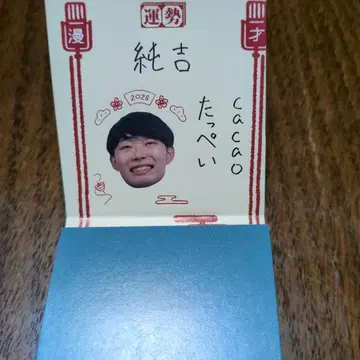 運勢
漫
才
純吉
2025
cacao
たっぺい